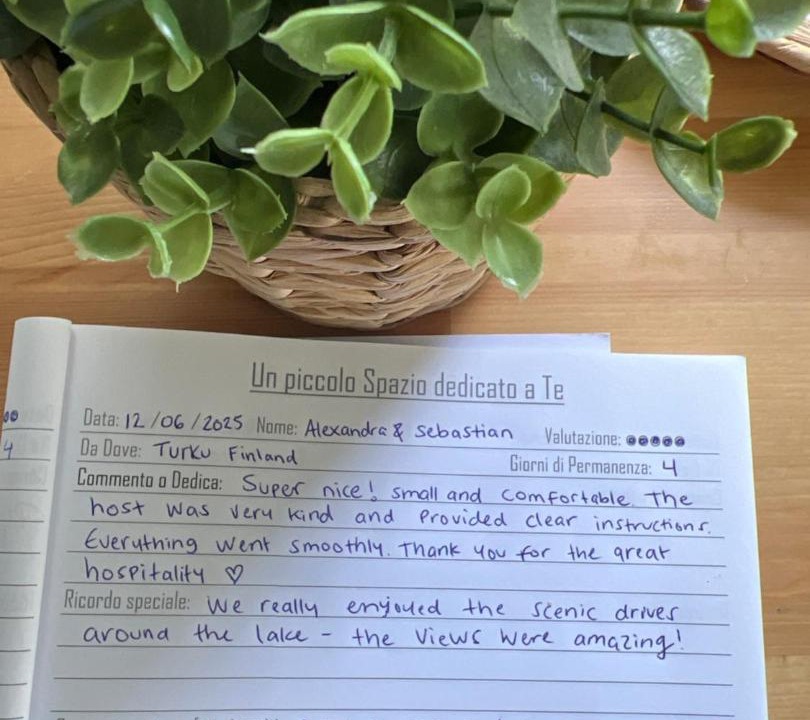 Un piccolo Spazio dedicato a Te
Data: 12/06/2025 Nome: Alexandra & Sebastian Valutazione: ●●●●●
Da Dove: Turku Finland Giorni di Permanenza: 4
Commento o Dedica: Super nice! small and comfortable. The
host was very kind and provided clear instructions.
Everything went smoothly. Thank you for the great
hospitality ♡
Ricordo speciale: We really enjoyed the scenic drives
around the lake - the views were amazing!
4